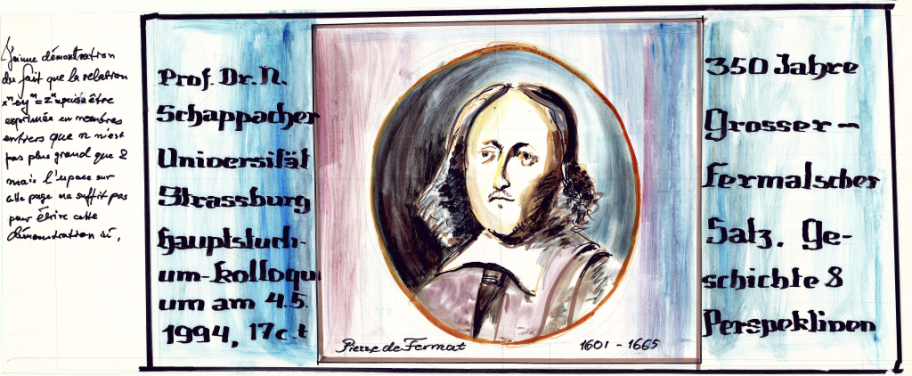 J'ai une démonstration
du fait que la relation
xⁿ+yⁿ=zⁿ puisse être
exprimée en nombres
entiers que n n'est
pas plus grand que 2
mais l'espace sur
cette page ne suffit pas
pour écrire cette
démonstration ici.
Prof. Dr. N.
Schappacher
Universität
Strassburg
Hauptstudi-
um-Kolloqui
um am 4.5.
1994, 17c.t
Pierre de Fermat
1601 - 1665
350 Jahre
Grosser-
Fermatscher
Satz. Ge-
schichte &
Perspektiven